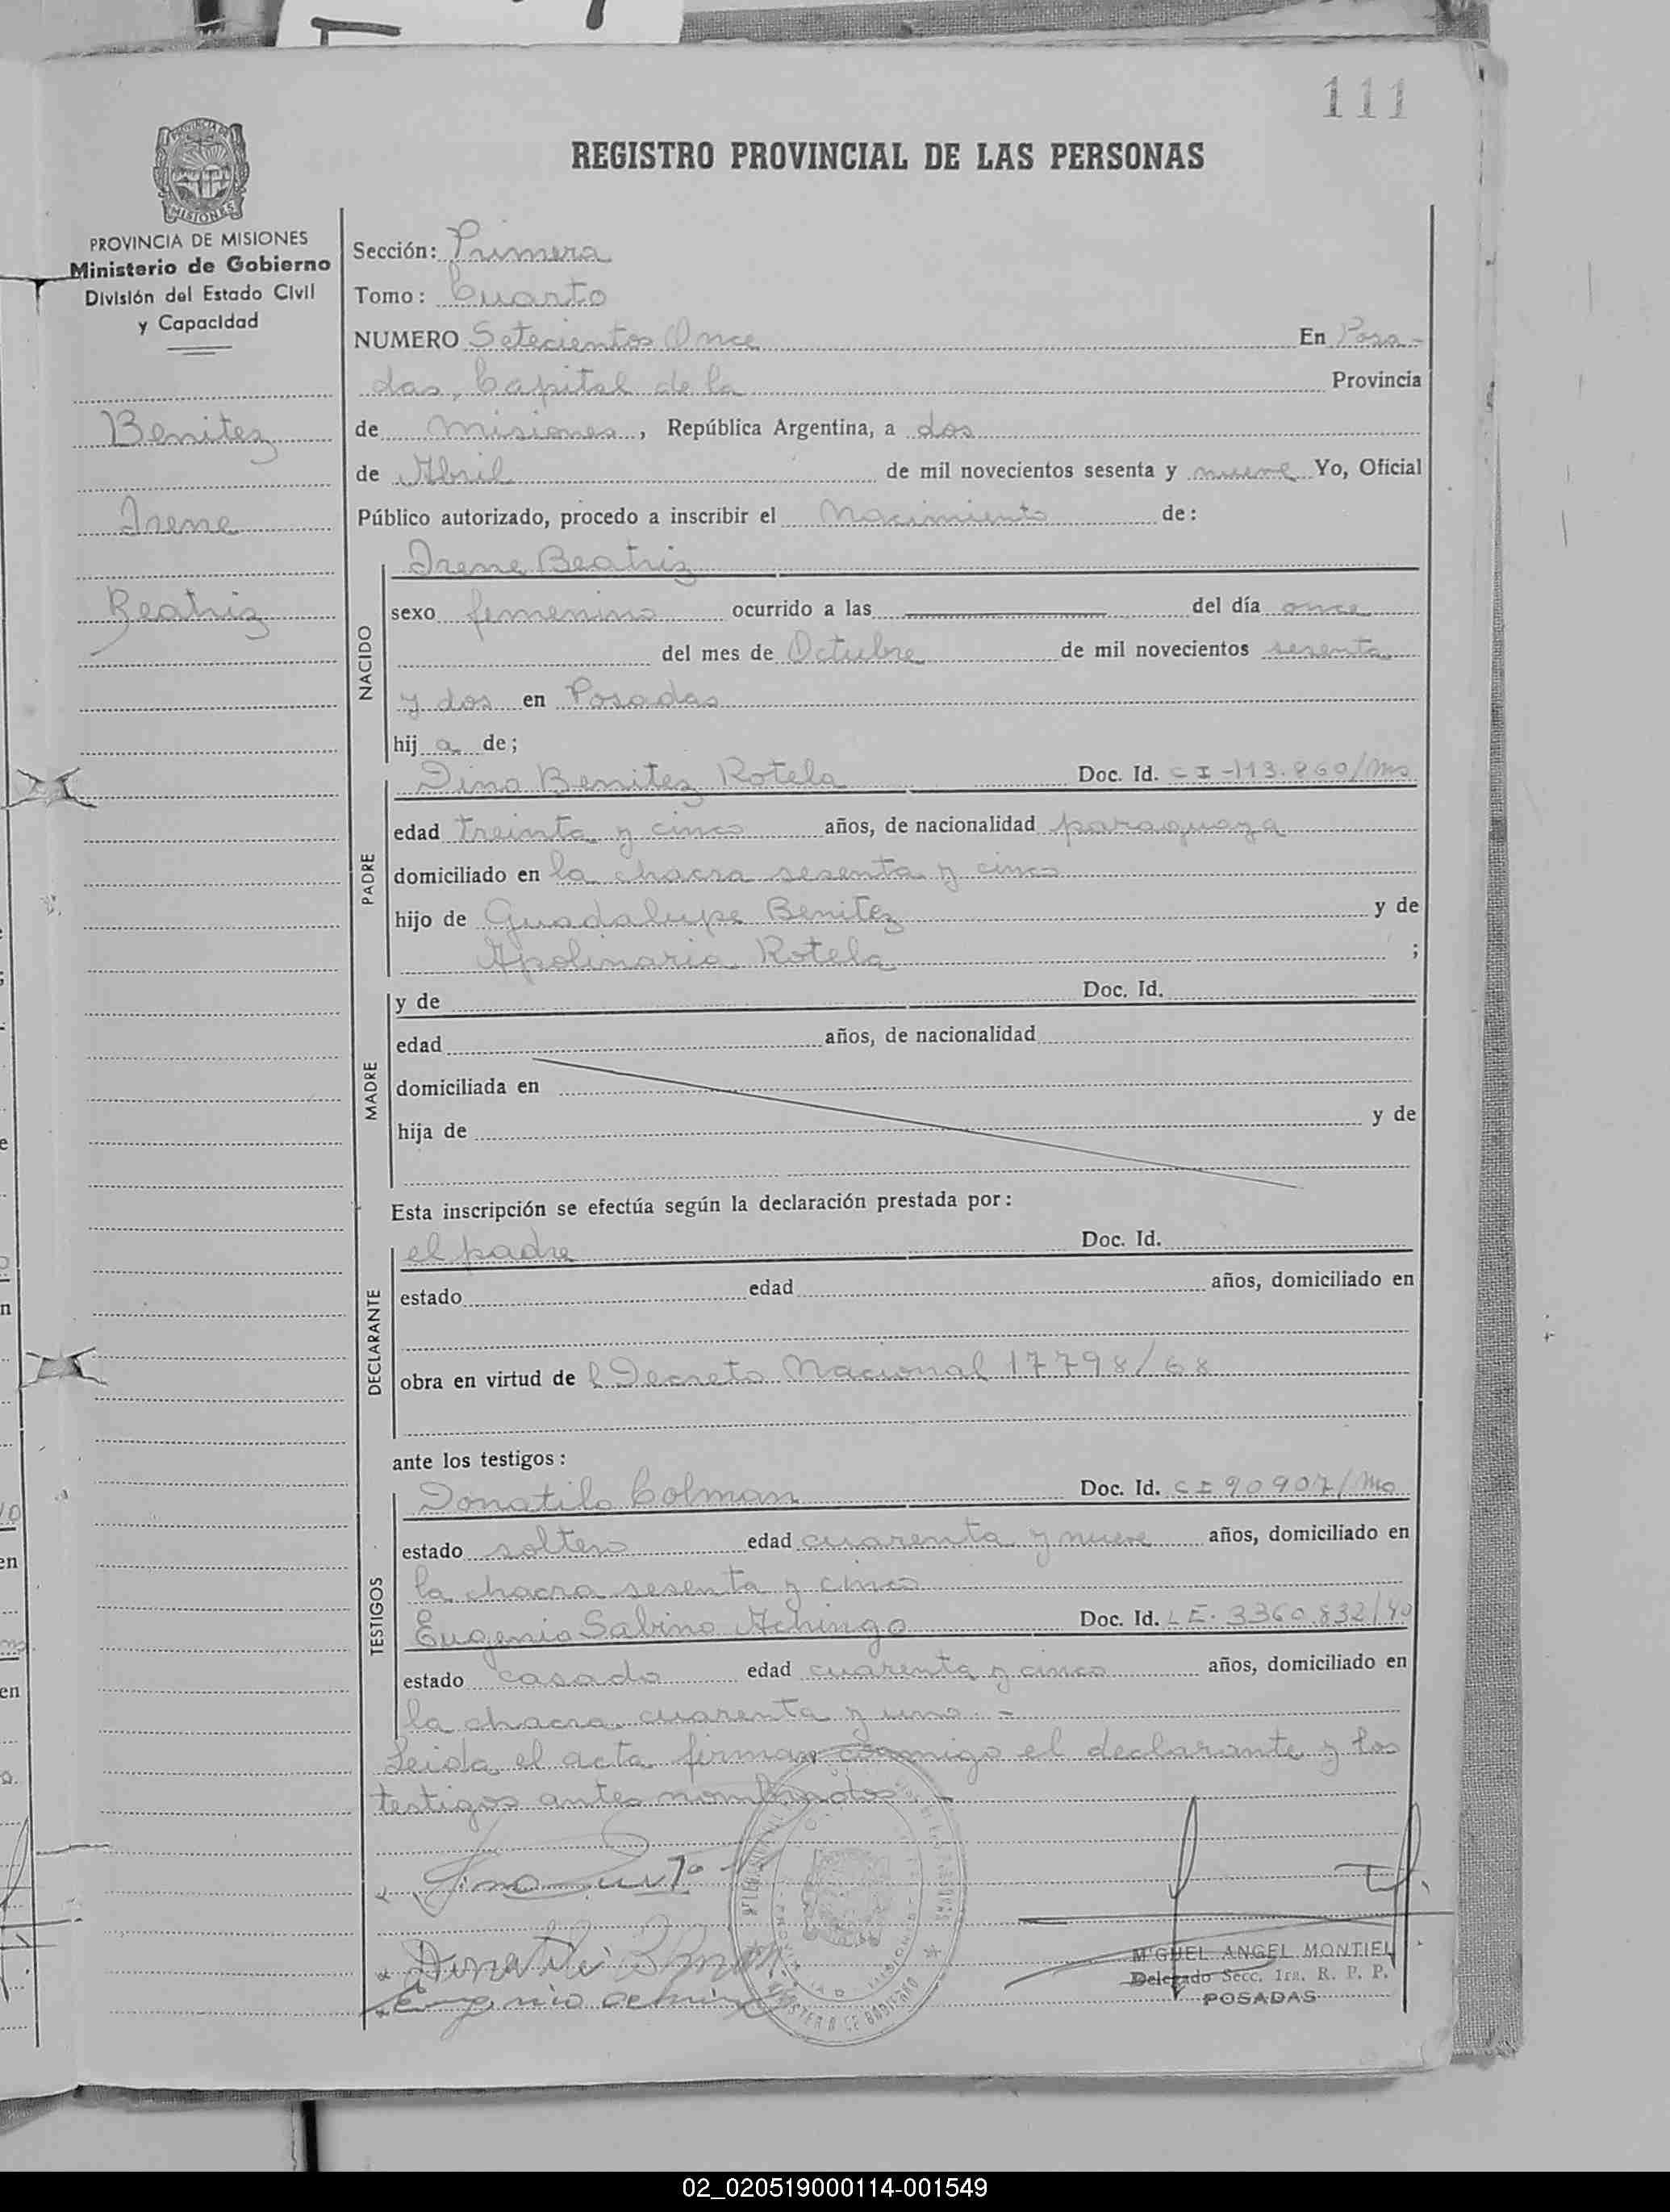 111
REGISTRO PROVINCIAL DE LAS PERSONAS
PROVINCIA DE MISIONES
Ministerio de Gobierno
División del Estado Civil
y Capacidad
Benitez
Irene
Beatriz
Sección: Primera
Tomo: Cuarto
NUMERO Setecientos Once En Posa-
das, Capital de la Provincia
de Misiones, República Argentina, a dos
de Abril de mil novecientos sesenta y nueve Yo, Oficial
Público autorizado, procedo a inscribir el Nacimiento de:
NACIDO
Irene Beatriz
sexo femenino ocurrido a las del día once
del mes de Octubre de mil novecientos sesenta
y dos en Posadas
hija de;
PADRE
Dino Benitez Rotela Doc. Id. CI-113.860/Ms
edad treinta y cinco años, de nacionalidad paraguaya
domiciliado en la chacra sesenta y cinco
hijo de Guadalupe Benitez y de
Apolinaria Rotela ;
MADRE
y de Doc. Id.
edad años, de nacionalidad
domiciliada en
hija de y de
Esta inscripción se efectúa según la declaración prestada por:
DECLARANTE
el padre Doc. Id.
estado edad años, domiciliado en
obra en virtud del Decreto Nacional 17798/68
ante los testigos:
TESTIGOS
Donatilo Colman Doc. Id. CI 90907/Ms
estado soltero edad cuarenta y nueve años, domiciliado en
la chacra sesenta y cinco
Eugenio Sabino Achingo Doc. Id. LE. 3360.832/40
estado casado edad cuarenta y cinco años, domiciliado en
la chacra cuarenta y uno. -
Leida el acta firman conmigo el declarante y los
testigos antes nombrados -
MIGUEL ANGEL MONTIEL
Delegado Secc. 1ra. R. P. P.
POSADAS
02_020519000114-001549